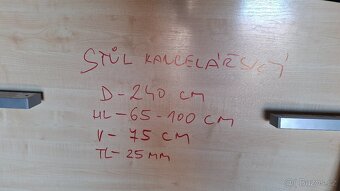 STŮL KANCELÁŘSKÝ
D-240 CM
HL-65-100 CM
V-75 CM
TL-25 MM